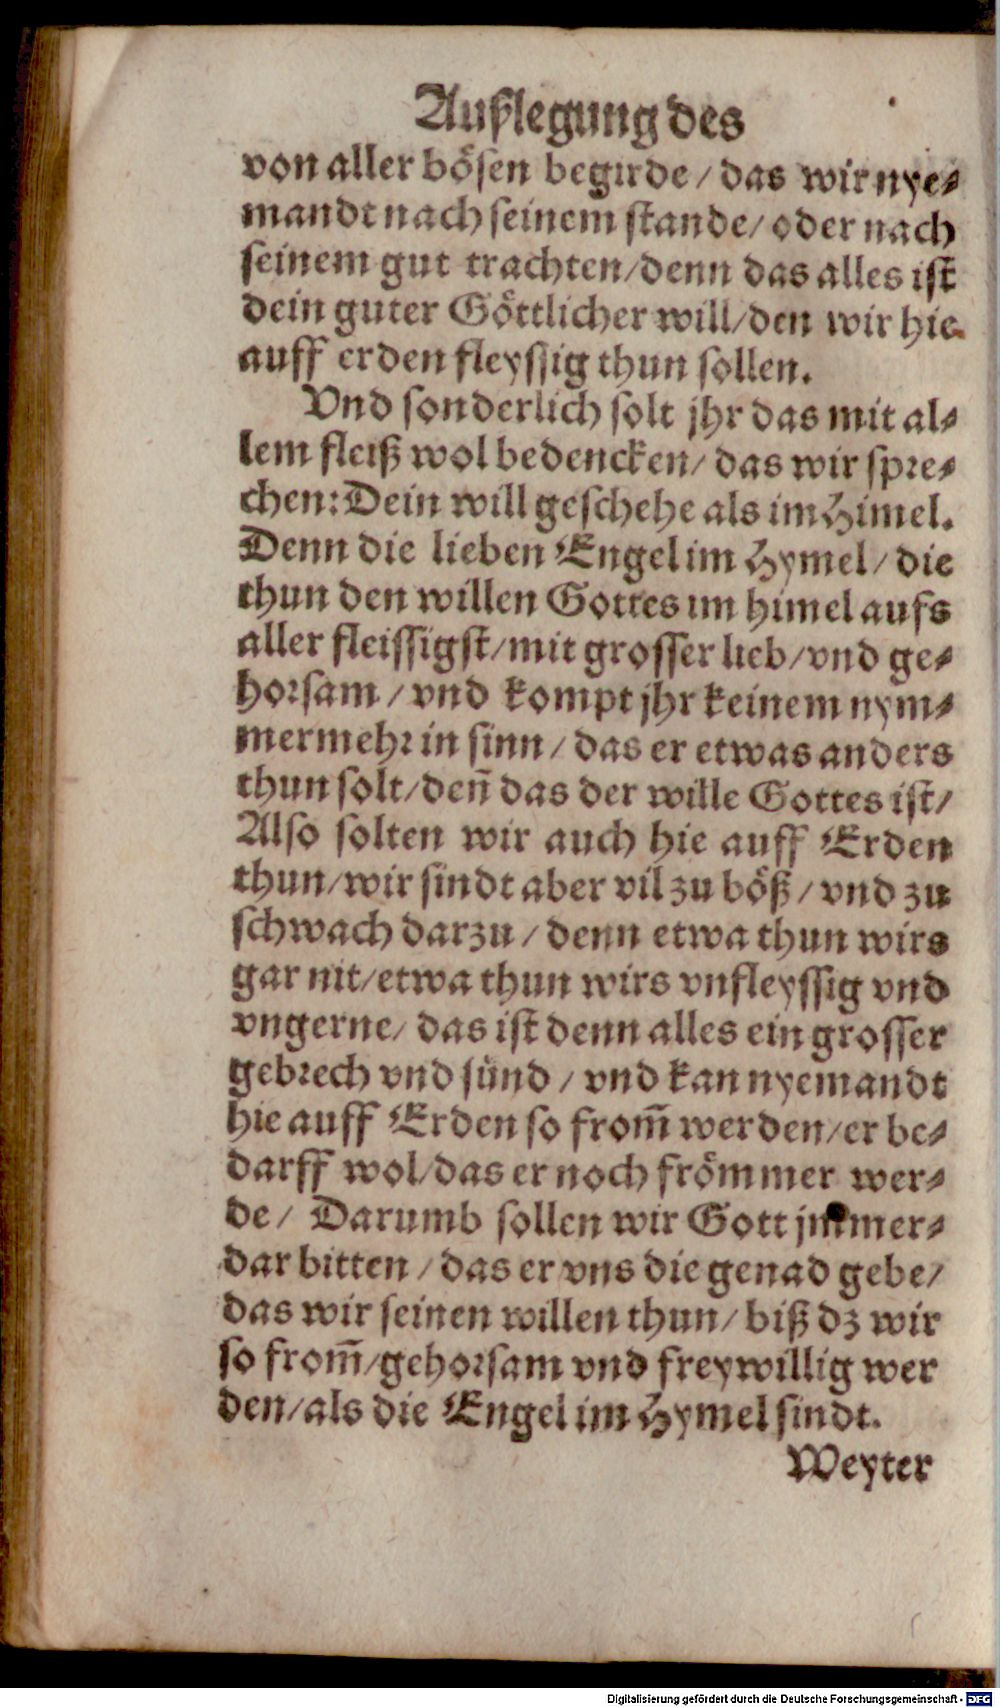 Außlegung des
von aller bösen begirde / das wir nye⸗
mandt nach seinem stande / oder nach
seinem gut trachten / denn das alles ist
dein guter Göttlicher will / den wir hie
auff erden fleyssig thun sollen.
Vnd sonderlich solt jhr das mit al⸗
lem fleiß wol bedencken / das wir spre⸗
chen: Dein will geschehe als im Himel.
Denn die lieben Engel im Hymel / die
thun den willen Gottes im himel aufs
aller fleissigst / mit grosser lieb / vnd ge⸗
horsam / vnd kompt jhr keinem nym⸗
mermehr in sinn / das er etwas anders
thun solt / deñ das der wille Gottes ist /
Also solten wir auch hie auff Erden
thun / wir sindt aber vil zu böß / vnd zu
schwach darzu / denn etwa thun wirs
gar nit / etwa thun wirs vnfleyssig vnd
vngerne / das ist denn alles ein grosser
gebrech vnd sünd / vnd kan nyemandt
hie auff Erden so from̃ werden / er be⸗
darff wol / das er noch frömmer wer⸗
de / Darumb sollen wir Gott jmmer⸗
dar bitten / das er vns die genad gebe /
das wir seinen willen thun / biß dz wir
so from̃ / gehorsam vnd freywillig wer
den / als die Engel im Hymel sindt.
Weyter
Digitalisierung gefördert durch die Deutsche Forschungsgemeinschaft - DFG